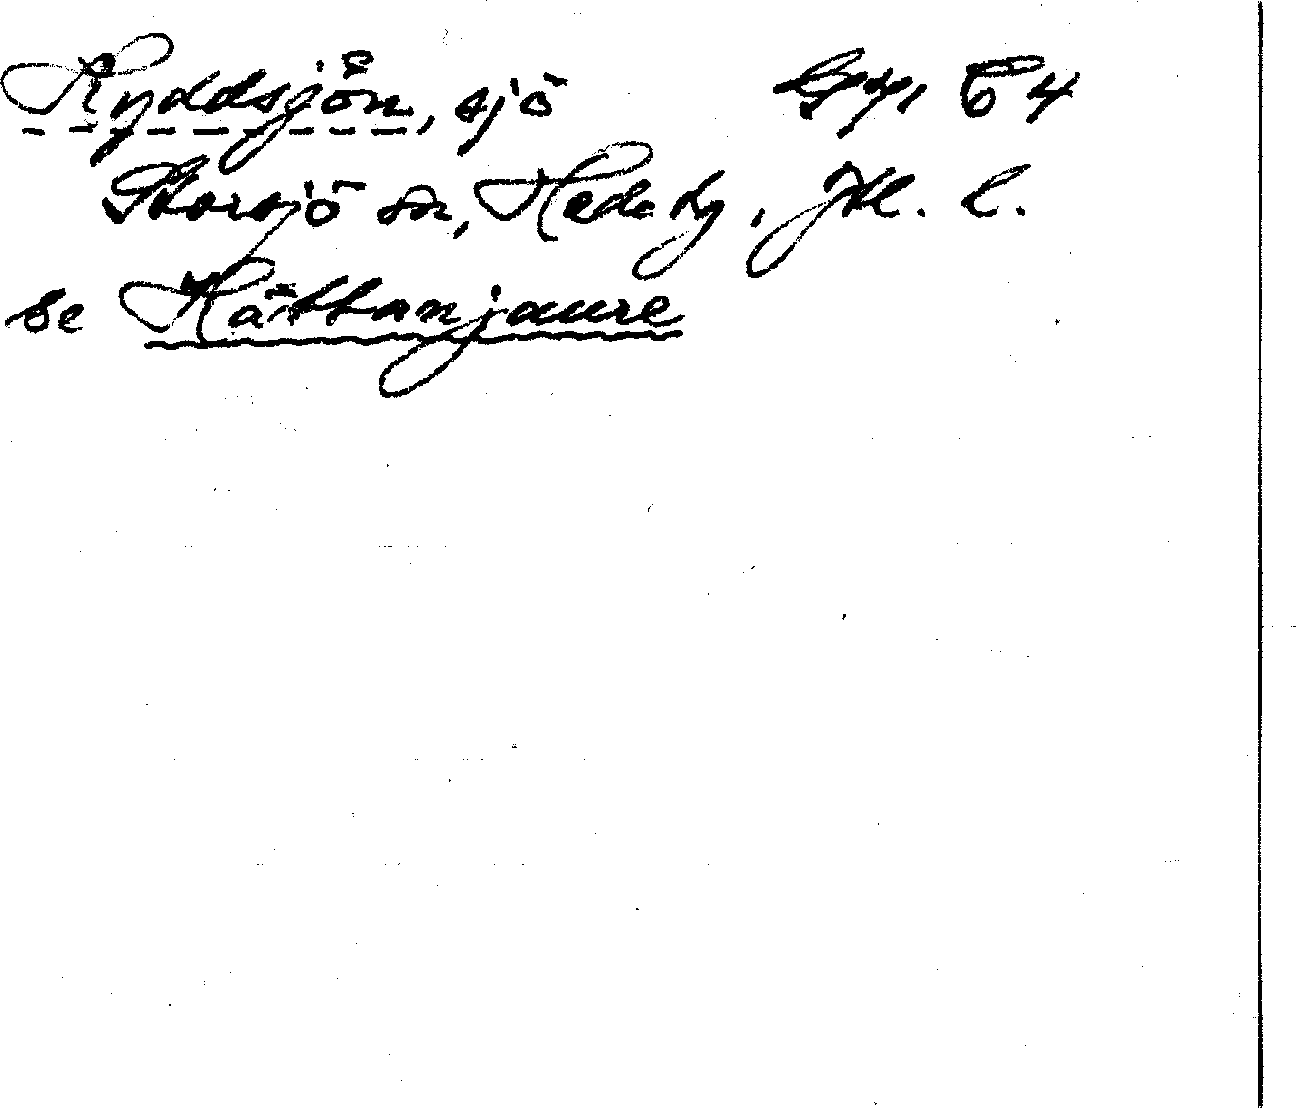 Ryddsjön, sjö
Storsjö sn, Hede tg, Jtl. l.
se Hättanjaure